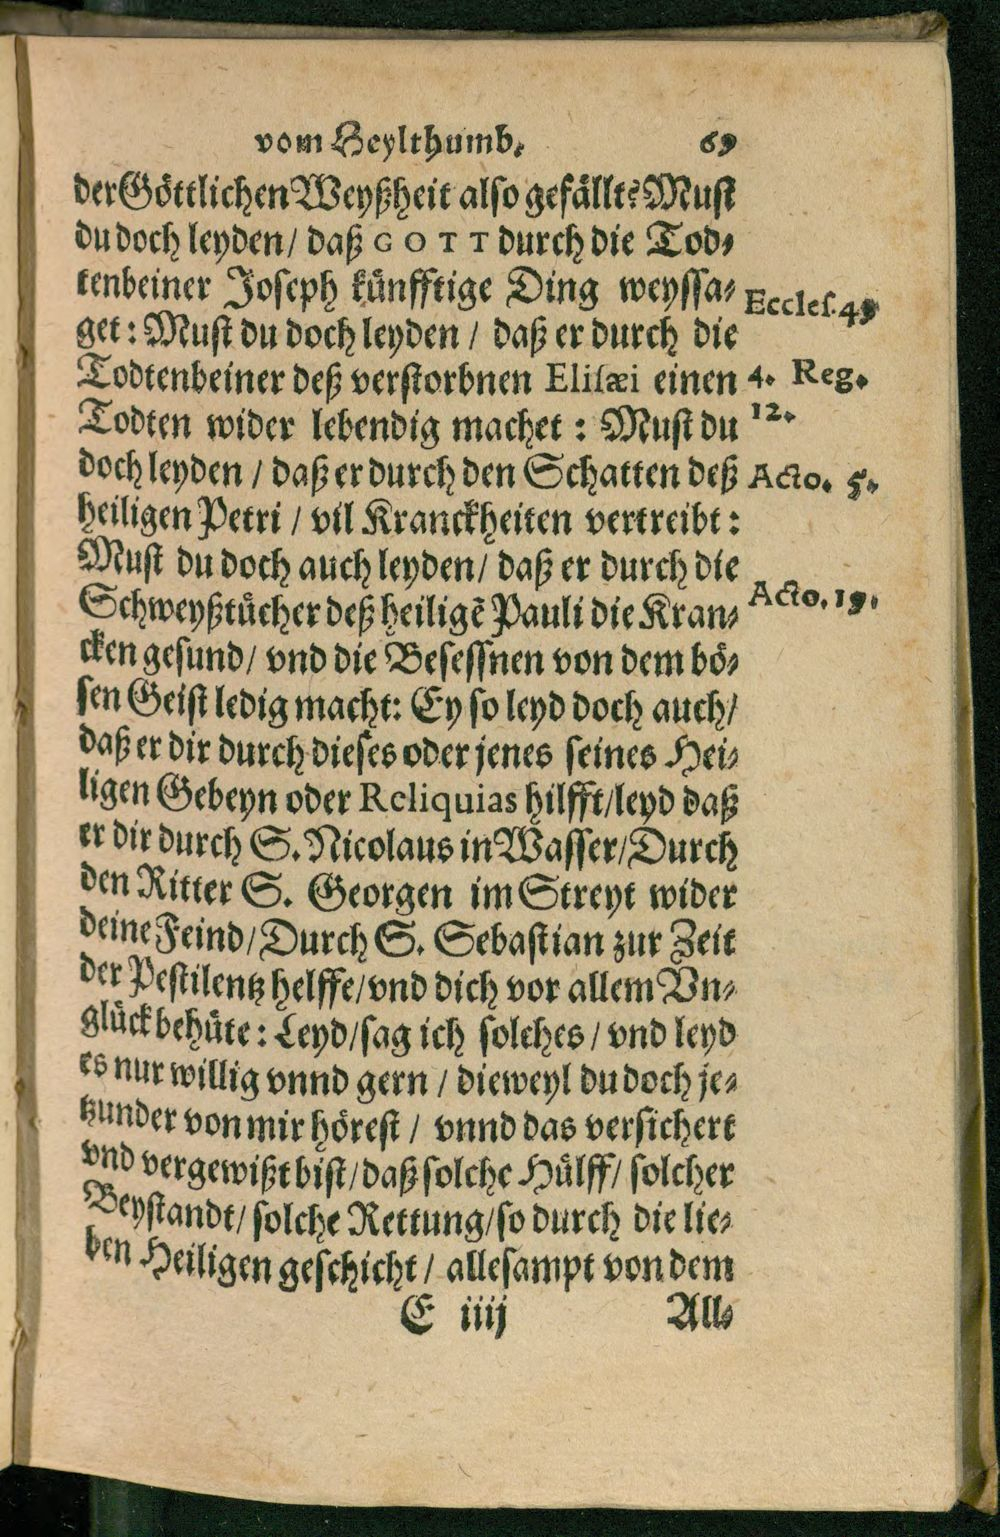 vom Heylthumb. 69
der Göttlichen Weyßheit also gefällt? Must
du doch leyden / daß GOTT durch die Tod⸗
tenbeiner Joseph künfftige Ding weyssa⸗
Eccles. 49
get : Must du doch leyden / daß er durch die
Todtenbeiner deß verstorbnen Elisæi einen
4. Reg.
Todten wider lebendig machet : Must du
12.
doch leyden / daß er durch den Schatten deß
Acto. 5.
heiligen Petri / vil Kranckheiten vertreibt :
Must du doch auch leyden / daß er durch die
Schweyßtücher deß heiligẽ Pauli die Kran⸗
Acto. 19.
cken gesund / vnd die Besessnen von dem bö⸗
sen Geist ledig macht: Ey so leyd doch auch /
daß er dir durch dieses oder jenes seines Hei⸗
ligen Gebeyn oder Reliquias hilfft / leyd daß
er dir durch S. Nicolaus in Wasser / Durch
den Ritter S. Georgen im Streyt wider
deine Feind / Durch S. Sebastian zur Zeit
der Pestilentz helffe / vnd dich vor allem Vn⸗
glück behüte : Leyd / sag ich solches / vnd leyd
es nur willig vnnd gern / dieweyl du doch je⸗
tzunder von mir hörest / vnnd das versichert
vnd vergewißt bist / daß solche Hülff / solcher
Beystandt / solche Rettung / so durch die lie⸗
ben Heiligen geschicht / allesampt von dem
E iiij All⸗